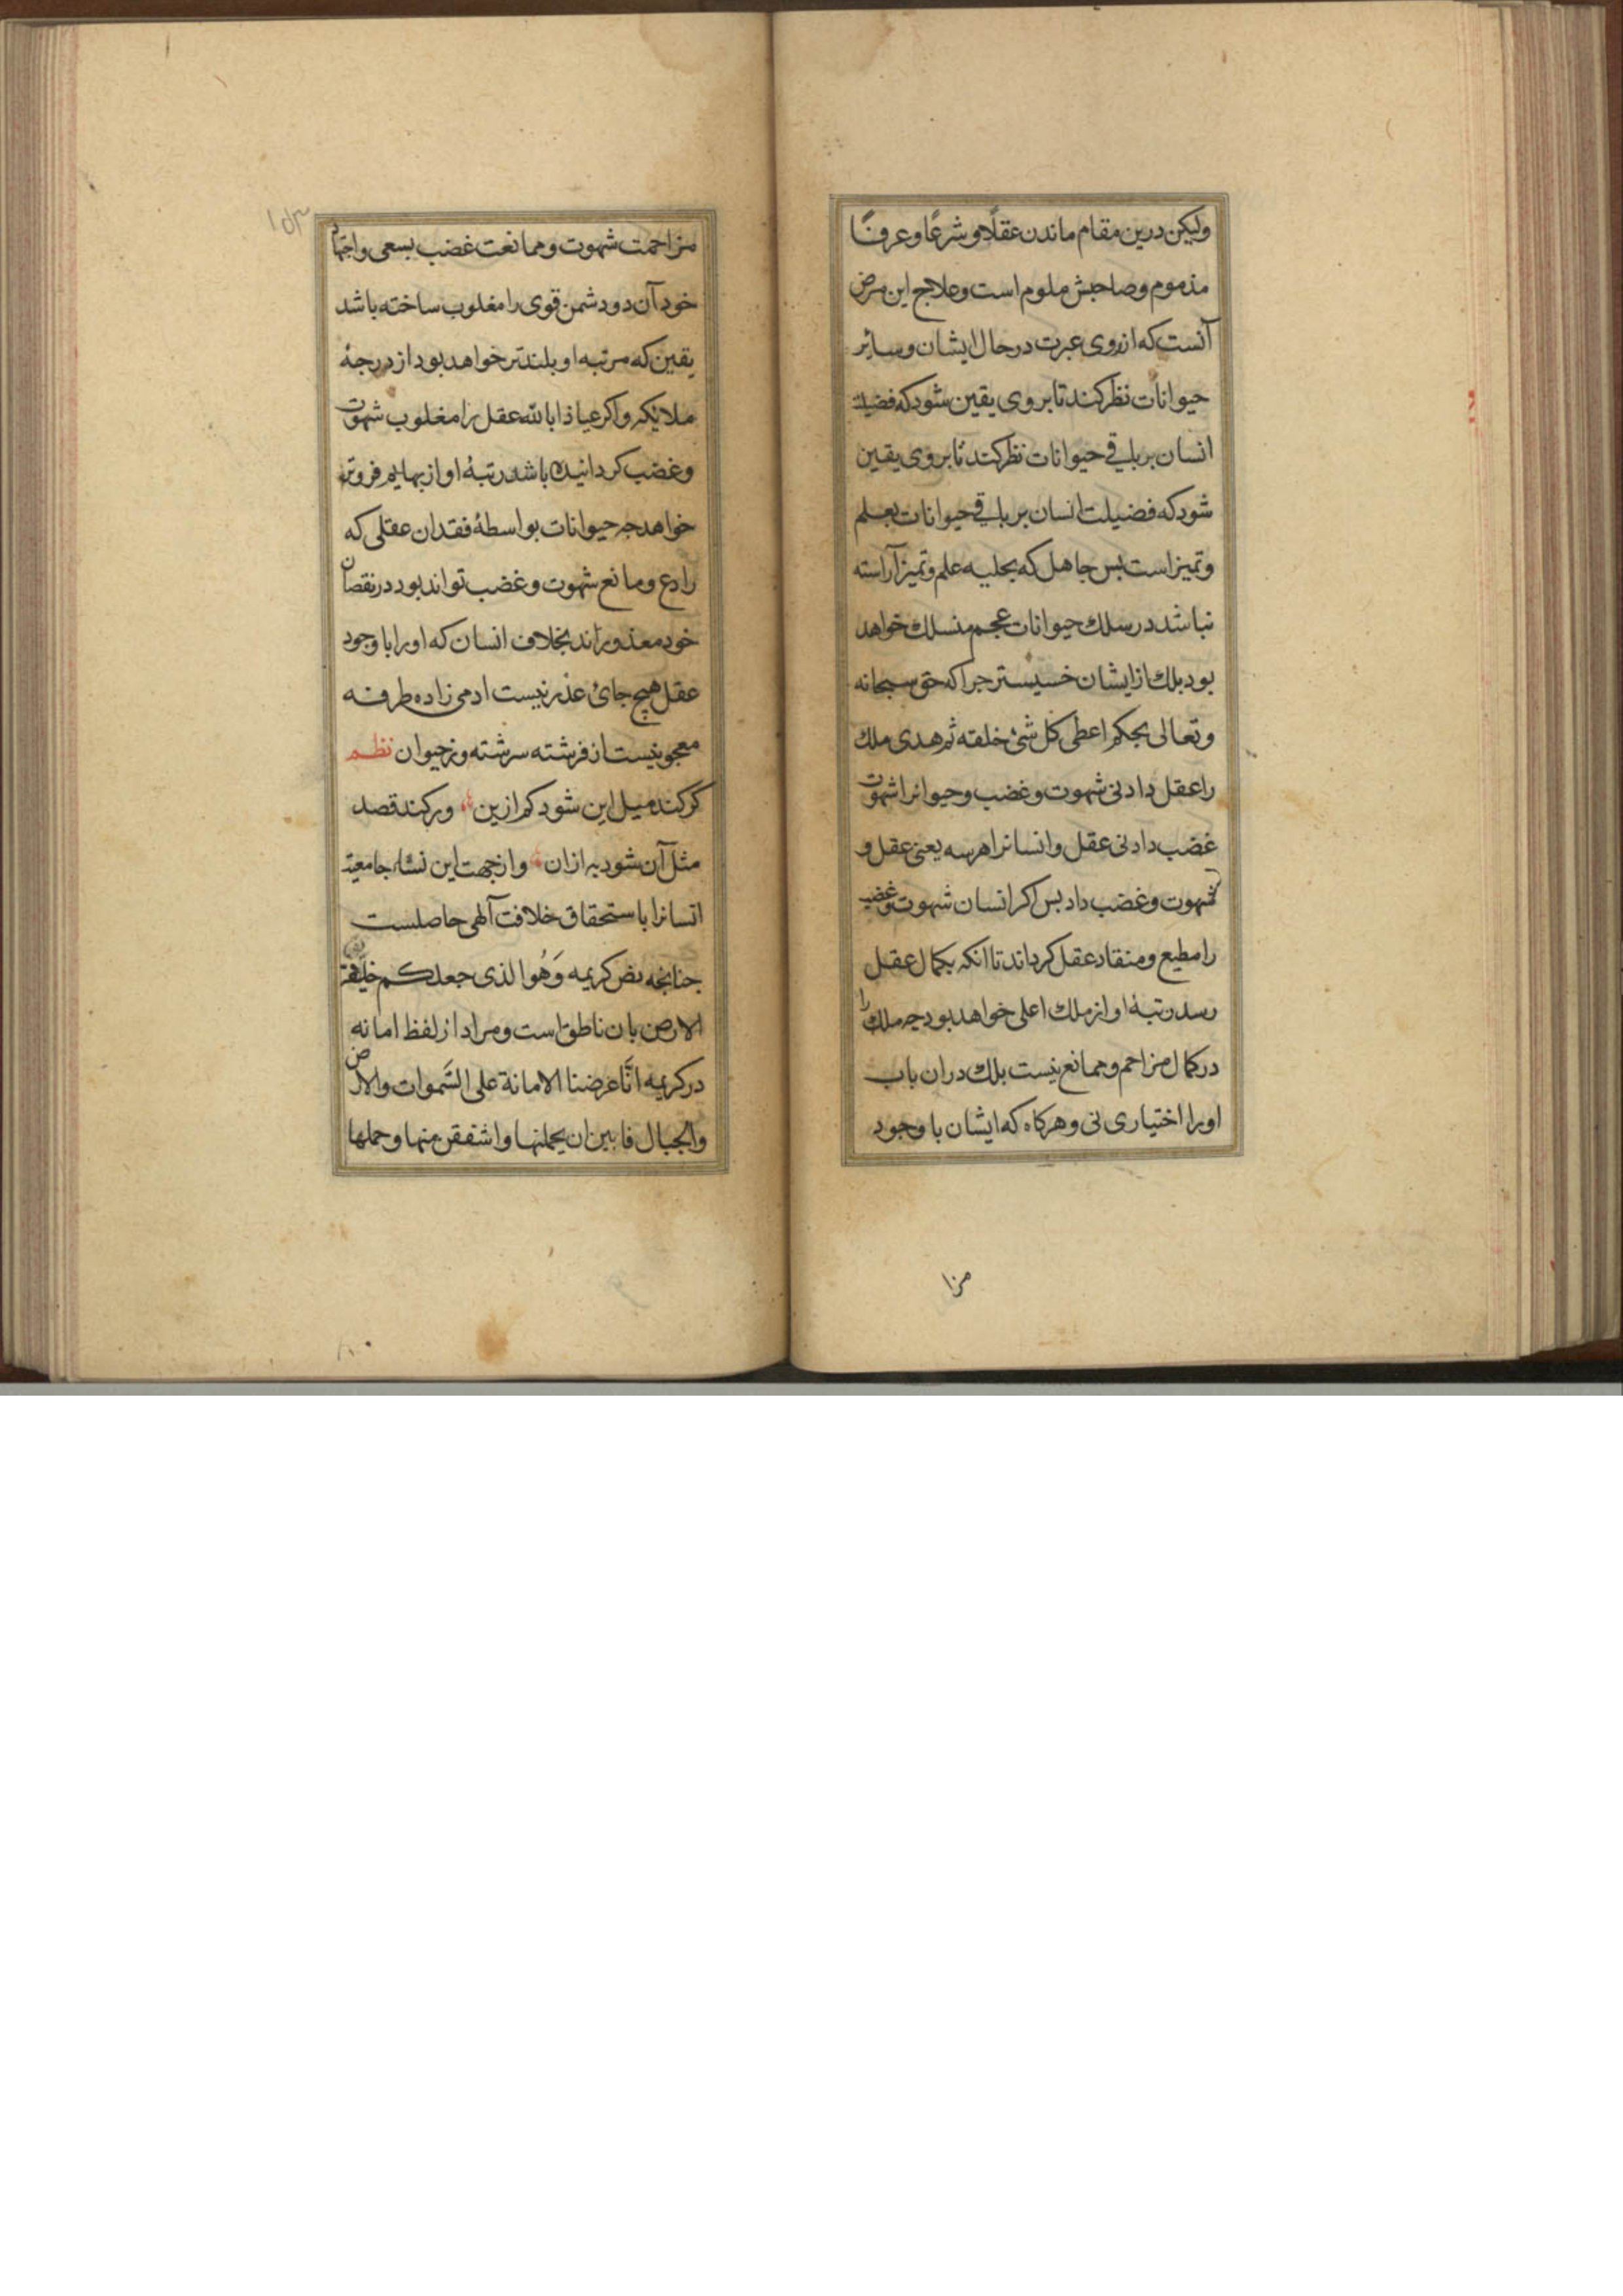 ولیکن درین مقام ماندن عقلاً و شرعًا و عرفًا
مذموم و صاحبش ملوم است و علاج این مرض
آنست که از روی عبرت در حال ایشان و سایر
حیوانات نظر کند تا بروی یقین شود که فضیلت
انسان بر باقی حیوانات نظر کند تا بروی یقین
شود که فضیلت انسان بر باقی حیوانات بعلم
و تمیز است بس جاهل که بحلیه علم و تمیز آراسته
نباشد در سلك حیوانات عجم منسلك خواهد
بود بلك از ایشان خسیستر جرا که حق سبحانه
و تعالی بحکم اعطی کل شئ خلقه ثم هدی ملك
را عقل داد نی شهوت و غضب و حیوانرا شهوت
غضب داد نی عقل و انسانرا هر سه یعنی عقل و
شهوت و غضب داد بس اکر انسان شهوت و غضب
را مطیع و منقاد عقل کرداند تا انکه بکمال عقل
رسد رتبهٔ او از ملك اعلی خواهد بود جه ملك را
در کمال مزاحم و ممانع نیست بلك دران باب
اورا اختیاری نی و هرکاه که ایشان با وجود
مزا
۱۵۳
مزاحمت شهوت و ممانعت غضب بسعی و اجتهاد
خود آن دو دشمن قوی را مغلوب ساخته باشد
یقین که مرتبه او بلندتر خواهد بود از درجهٔ
ملایکه و اکر عیاذا بالله عقل را مغلوب شهوت
و غضب کردانیده باشد رتبهٔ او از بهایم فروتر
خواهد جه حیوانات بواسطهٔ فقدان عقلی که
رادع و مانع شهوت و غضب تواند بود در نقصان
خود معذوراند بخلاف انسان که اورا با وجود
عقل هیچ جائ عذر نیست ادمی زاده طرفه
معجونیست از فرشته سرشته وز حیوان نظم
کر کند میل این شود کم ازین ورکند قصد
مثل آن شود به ازان و از جهت این نشاء جامعیة
انسانرا باستحقاق خلافت آلهی حاصلست
جنانجه نص کریمه وَهُوا لذی جعلکم خلیفة فی
الارض بان ناطق است و مراد از لفظ امانه
در کریمه انّا عرضنا الامانة علی السَّموات والارض
والجبال فابین ان یحملنها واشفقن منها وحملها